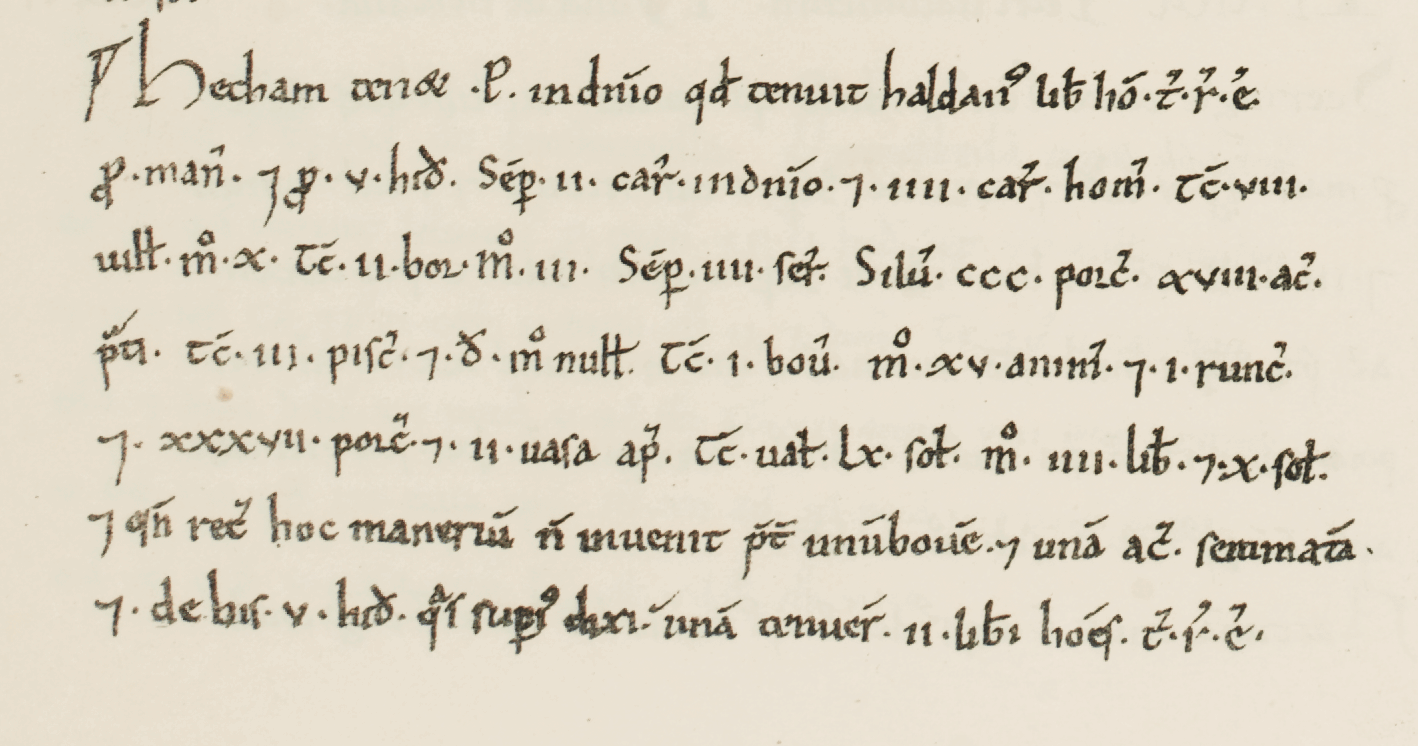 Hecham ten& ·P· in dñio qd̃ tenuit haldan⁹ lib̄ hõ· t̃· r̃· ẽ·
ꝓ· mañ· ⁊ ꝓ· v· hid̃· Sẽp· ii· car̃· in dñio· ⁊· iiii· car̃· hom̃· Tc̃· viii·
uiłł· m̊· x· Tc̃· ii· bor· m̊· iii· Sẽp· iiii· ser̃· Silũ· ccc· porc̃· xviii· ac̃·
pͣti· tc̃· iii· pisc̃· ⁊· d̃· m̊ nułł· Tc̃· i· boũ· m̊· xv· anim̃· ⁊· i· runc̃·
⁊· xxxvii· porc̃· ⁊· ii· uasa ap̃· Tc̃· uał· lx· soł· m̊· iiii· lib̃· ⁊· x· soł·
⁊ qñ rec̃ hoc maneriũ ñ inuenit p̃t̃ unũ bouẽ· ⁊ unã ac̃· seminatã·
⁊· de his· v· hid̃· qͣs supi⁹ dixi· unã tenuer̃· ii· lib̃i hões· t̃· r̃· ẽ·